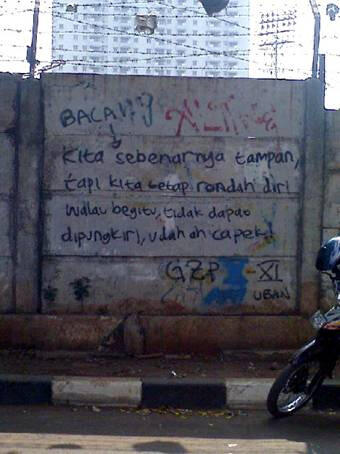 BACA
Kita sebenarnya tampan,
tapi kita tetap rondah diri
walau begitu, tidak dapat
dipungkiri, udah ah capek!
GZP XI
UBAN